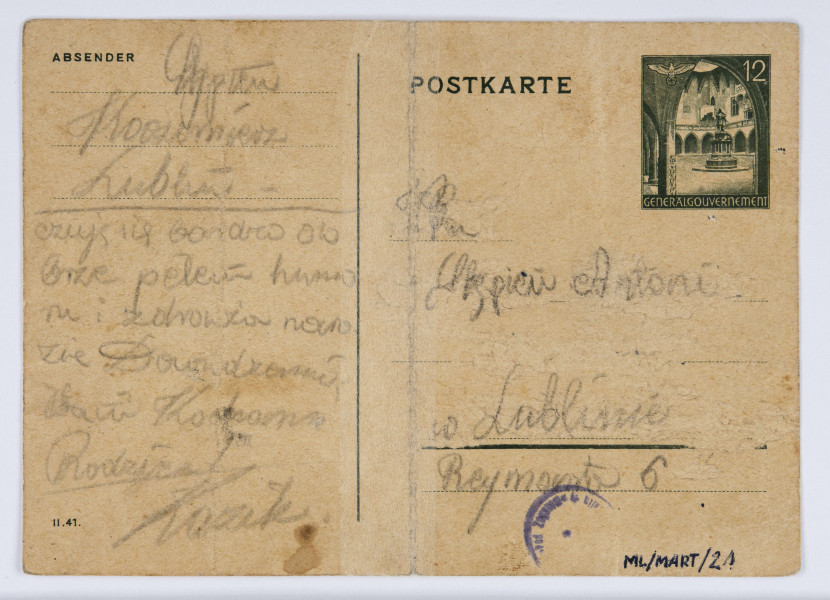 ABSENDER
Kazimierz
Lublin -
czuję się bardzo do
brze pełen humo
ru i zdrowia na ra
zie Dowidzenia
Wam Kochana
Rodzice
Kazik
II.41.
POSTKARTE
12
GENERALGOUVERNEMENT
Antoni
w Lublinie
Reymonta 6
ML/MART/21